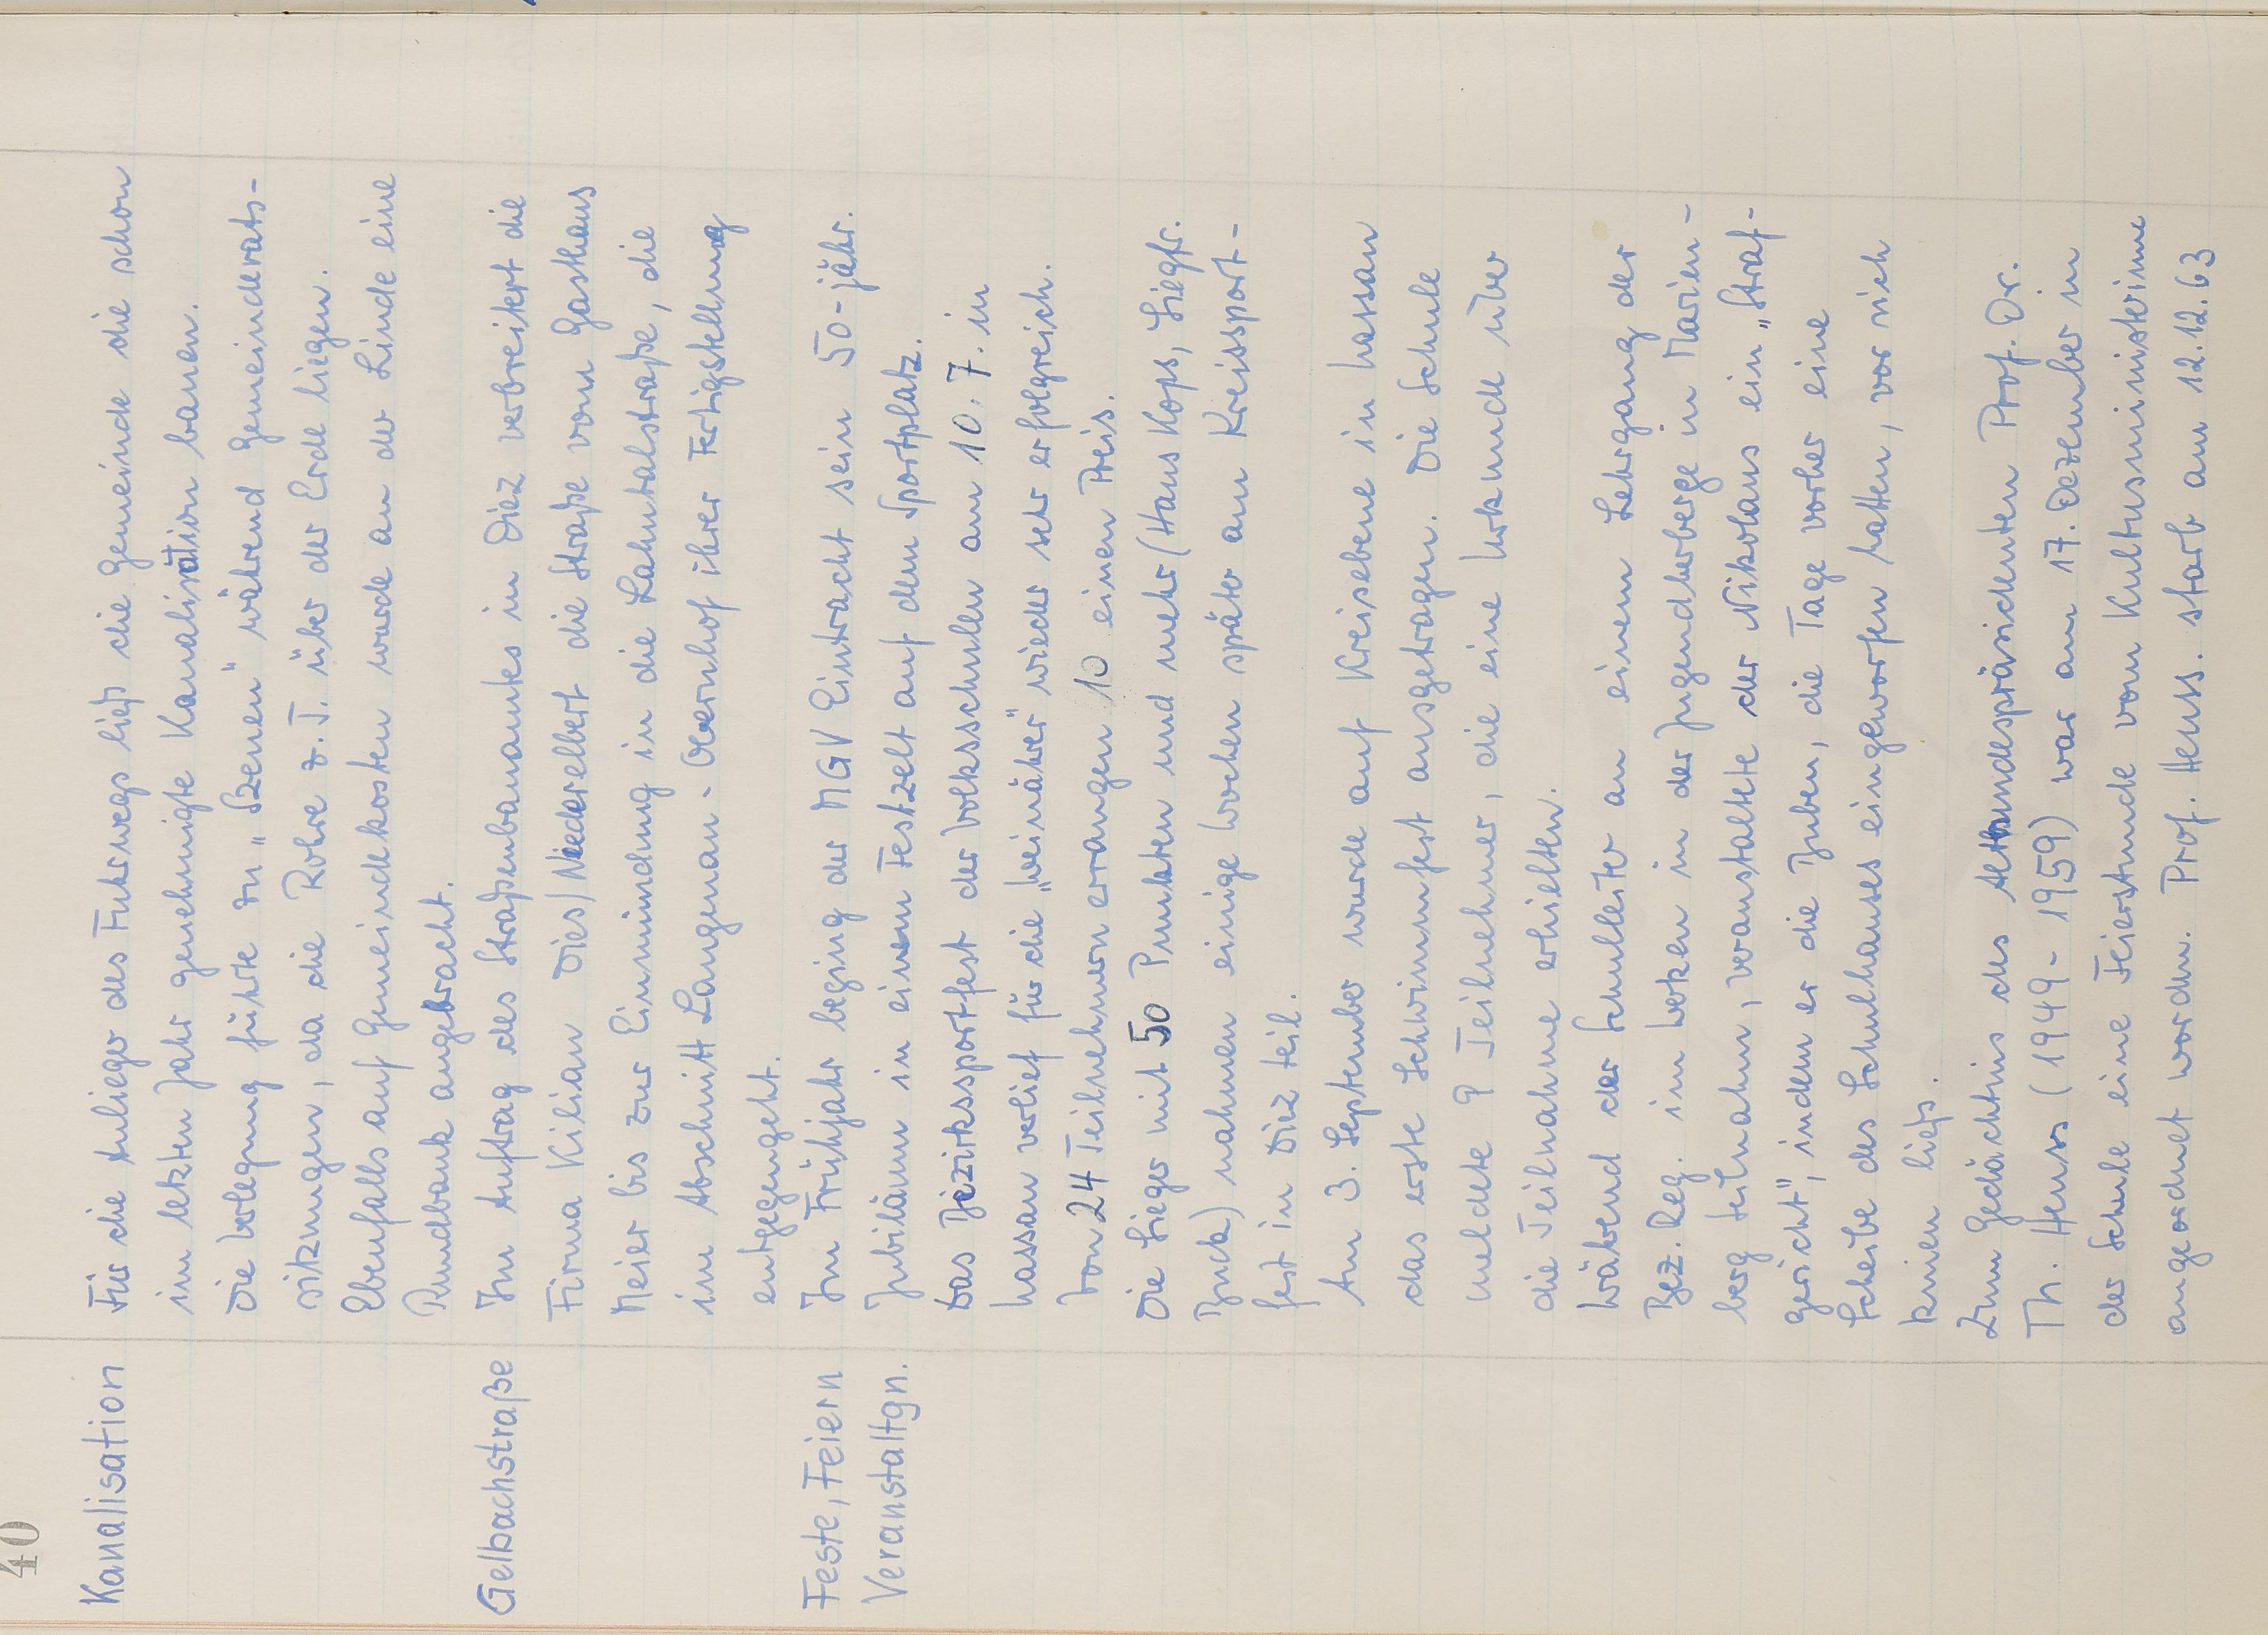 40
Kanalisation
Für die Anlieger des Fuhrwegs ließ die Gemeinde die schon
im letzten Jahr genehmigte Kanalisation bauen.
Die Verlegung führte zu „Szenen" während Gemeinderats-
sitzungen, da die Rohre z.T. über der Erde liegen.
Ebenfalls auf Gemeindekosten wurde an der Linde eine
Rundbank angebracht.
Gelbachstraße
Im Auftrag des Straßenbauamtes in Diez verbreitert die
Firma Kilian Dies/Niederelbert die Straße vom Gasthaus
Meier bis zur Einmündung in die Lahntalstraße, die
im Abschnitt Langenau - Obernhof ihrer Fertigstellung
entgegengeht.
Feste, Feiern
Veranstaltgn.
Im Frühjahr beging der MGV Eintracht sein 50-jähr.
Jubiläum in einem Festzelt auf dem Sportplatz.
Das Bezirkssportfest der Volksschulen am 10. 7. in
Nassau verlief für die „Weinährer" wieder sehr erfolgreich.
Von 24 Teilnehmern errangen 10 einen Preis.
Die Sieger mit 50 Punkten und mehr (Hans Kops, Siegfr.
Buck) nahmen einige Wochen später am Kreissport-
fest in Diez teil.
Am 3. September wurde auf Kreisebene in Nassau
das erste Schwimmfest ausgetragen. Die Schule
meldete 9 Teilnehmer, die eine Urkunde über
die Teilnahme erhielten.
Während der Schulleiter an einem Lehrgang der
Bez. Reg. im Werken in der Jugendherberge in Marien-
berg teilnahm, veranstaltete der Nikolaus ein „Straf-
gericht", indem er die Buben, die Tage vorher eine
Scheibe des Schulhauses eingeworfen hatten, vor sich
knien ließ.
Zum Gedächtnis des Altbundespräsidenten Prof. Dr.
Th. Heuss (1949 - 1959) war am 17. Dezember in
der Schule eine Feierstunde vom Kultusministerium
angeordnet worden. Prof. Heuss. starb am 12.12.63